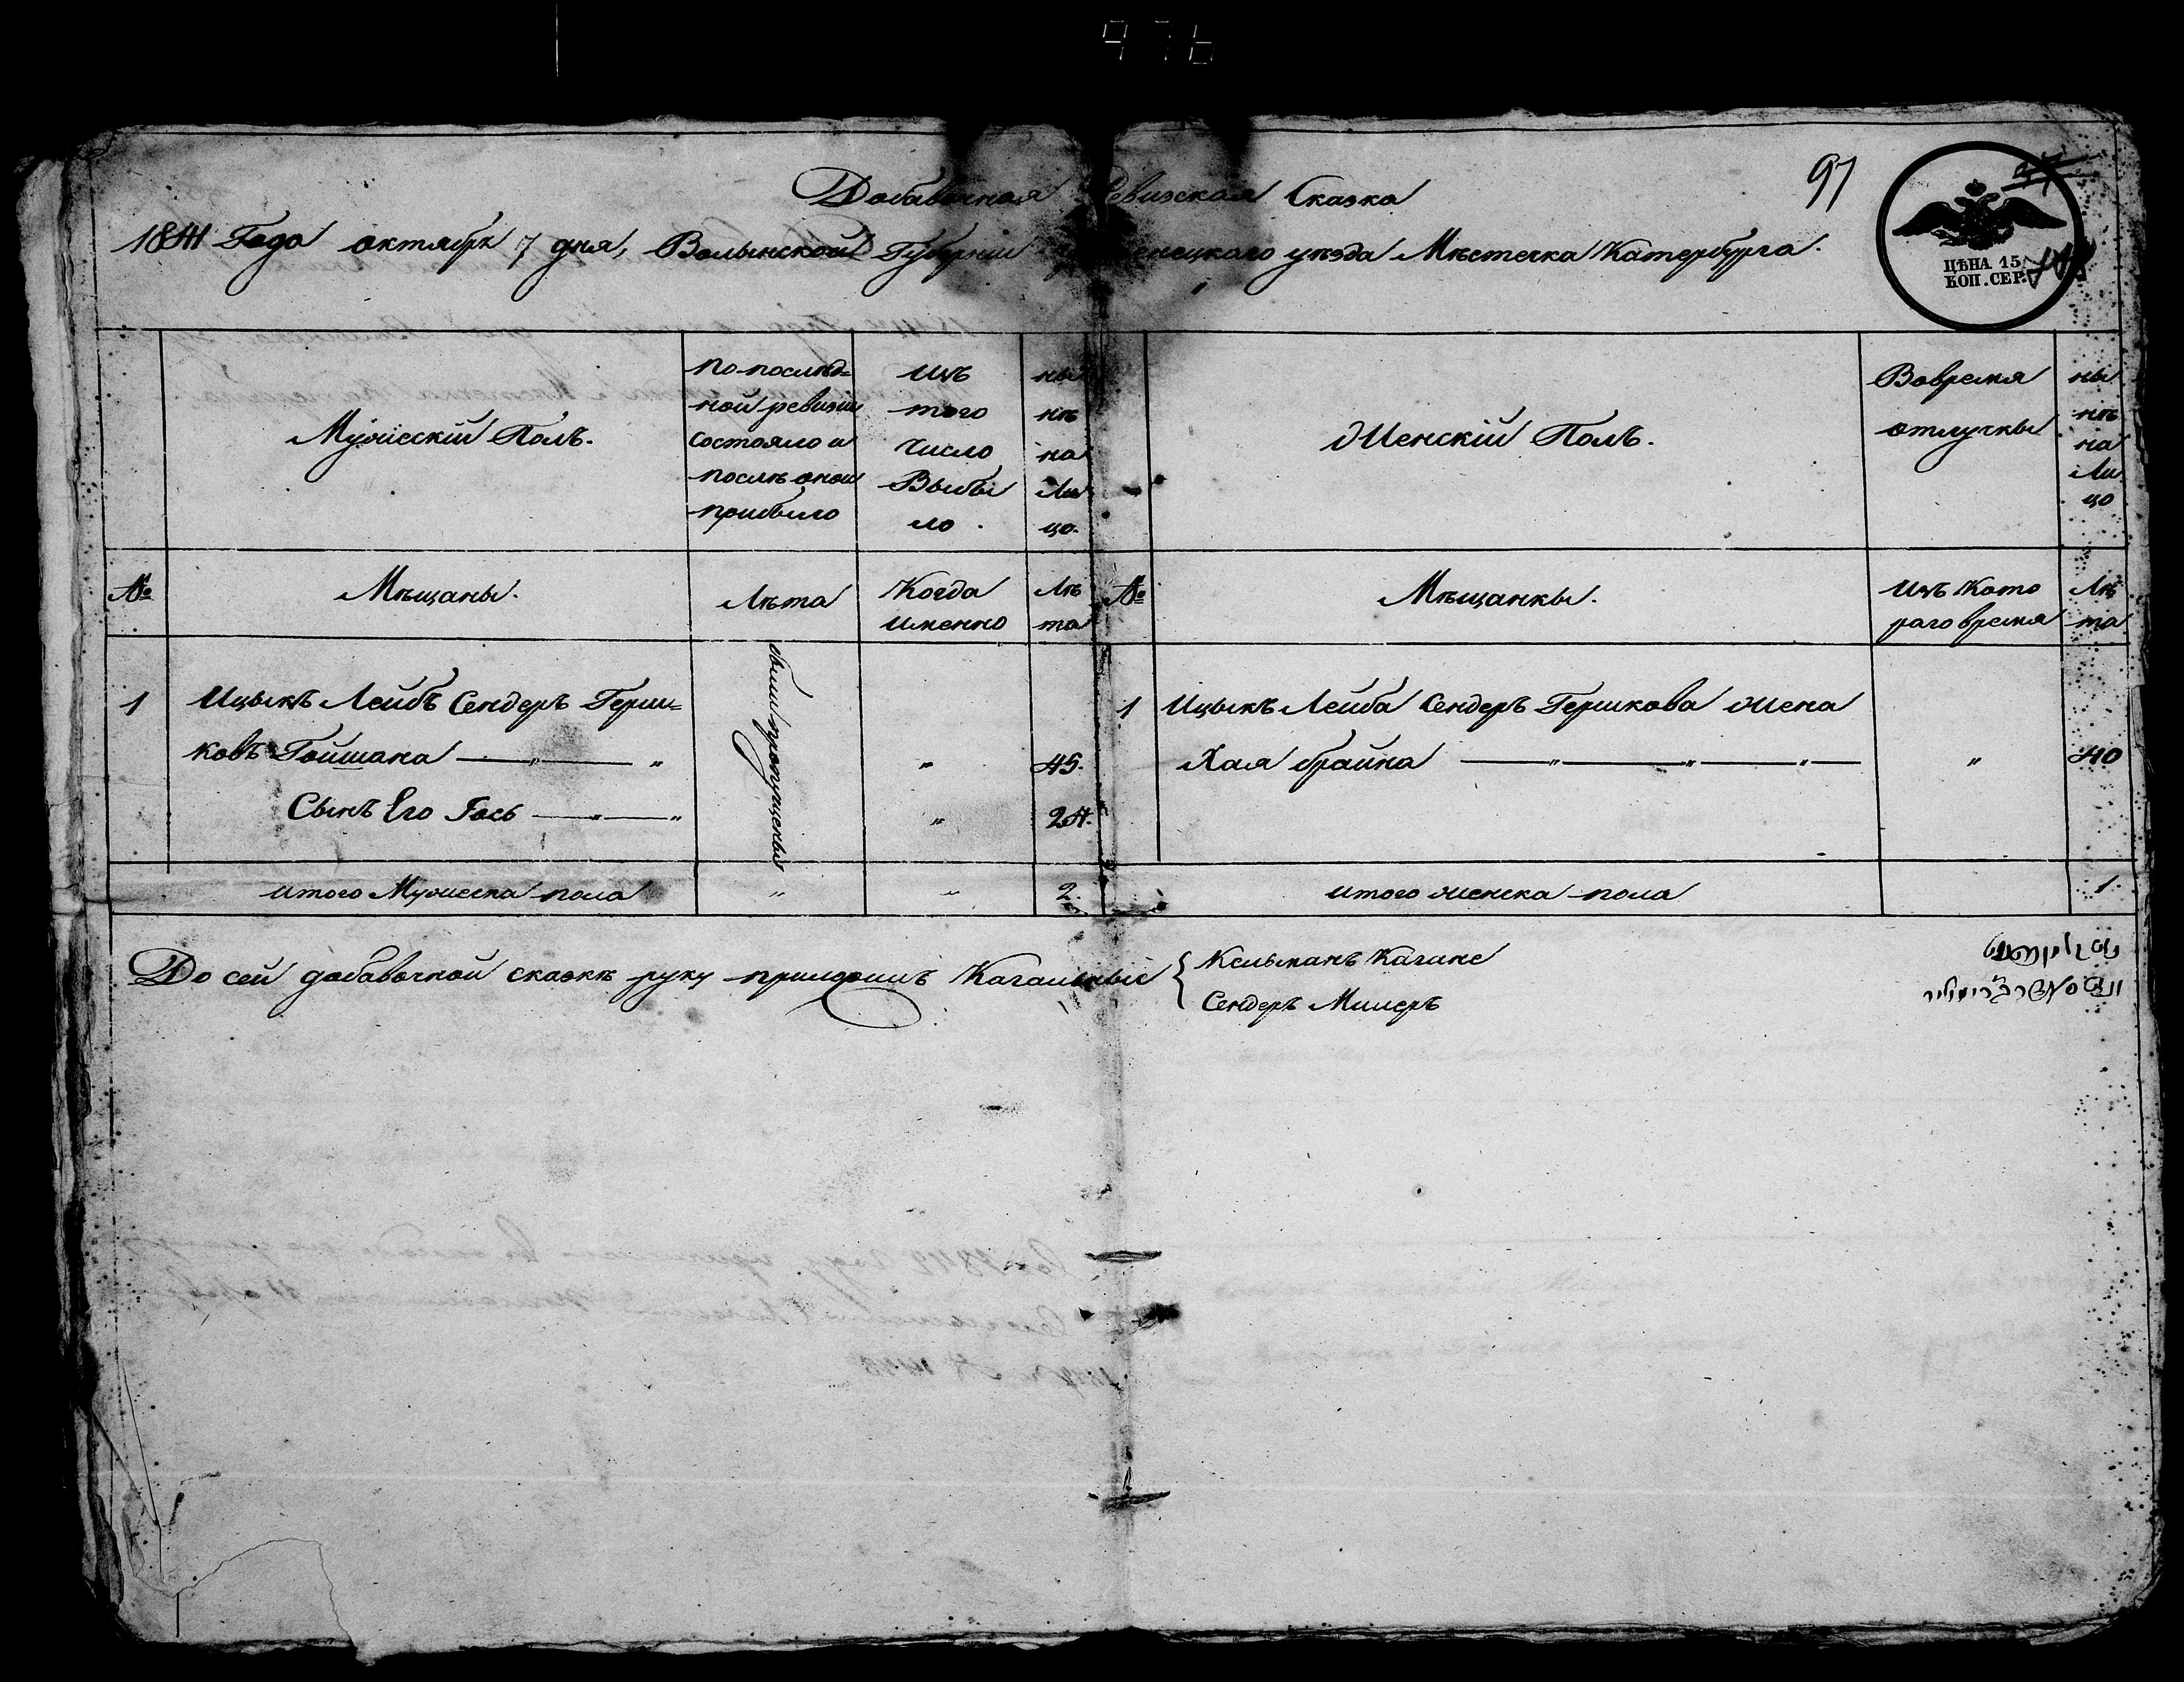 97
Добавочная Ревизская Сказка
1841 Года октября 7 дня, Волынской Губернiи енецкаго уѣзда Мѣстечка Катербурга.
ЦѢНА 15
КОП. СЕР.
Мужескiй Полъ.
По послѣд=
ной ревизiи
состояло и
послѣ оной
прибыло
Изъ
того
Число
Выбы
ло.
ны
нѣ
на
Ли
цо.
Женскiй Полъ.
Вовремя
отлучки
ны
нѣ
на
Ли
цо
№
Мѣщаны.
Лѣта
Когда
именно
Лѣ
та
№
Мѣщанки.
Изъ Кото
раго время
Лѣ
та
1 Ицыкъ Лейбъ Сендеръ Герш=
ковъ Гойшана — „ — „ „ 45.
Сынъ Его Гось — „ — „ „ 24.
были пропущены
1 Ицыкъ Лейба Сендеръ Гершкова жена
Хая брайна — „ — „ — „ — „ 40
итого Мужеска пола „ „ 2.
итого женска пола 1
До сей добавочной сказкѣ руку приложилъ Кагальные {
Кельманъ Кагане
Сендеръ Милеръ